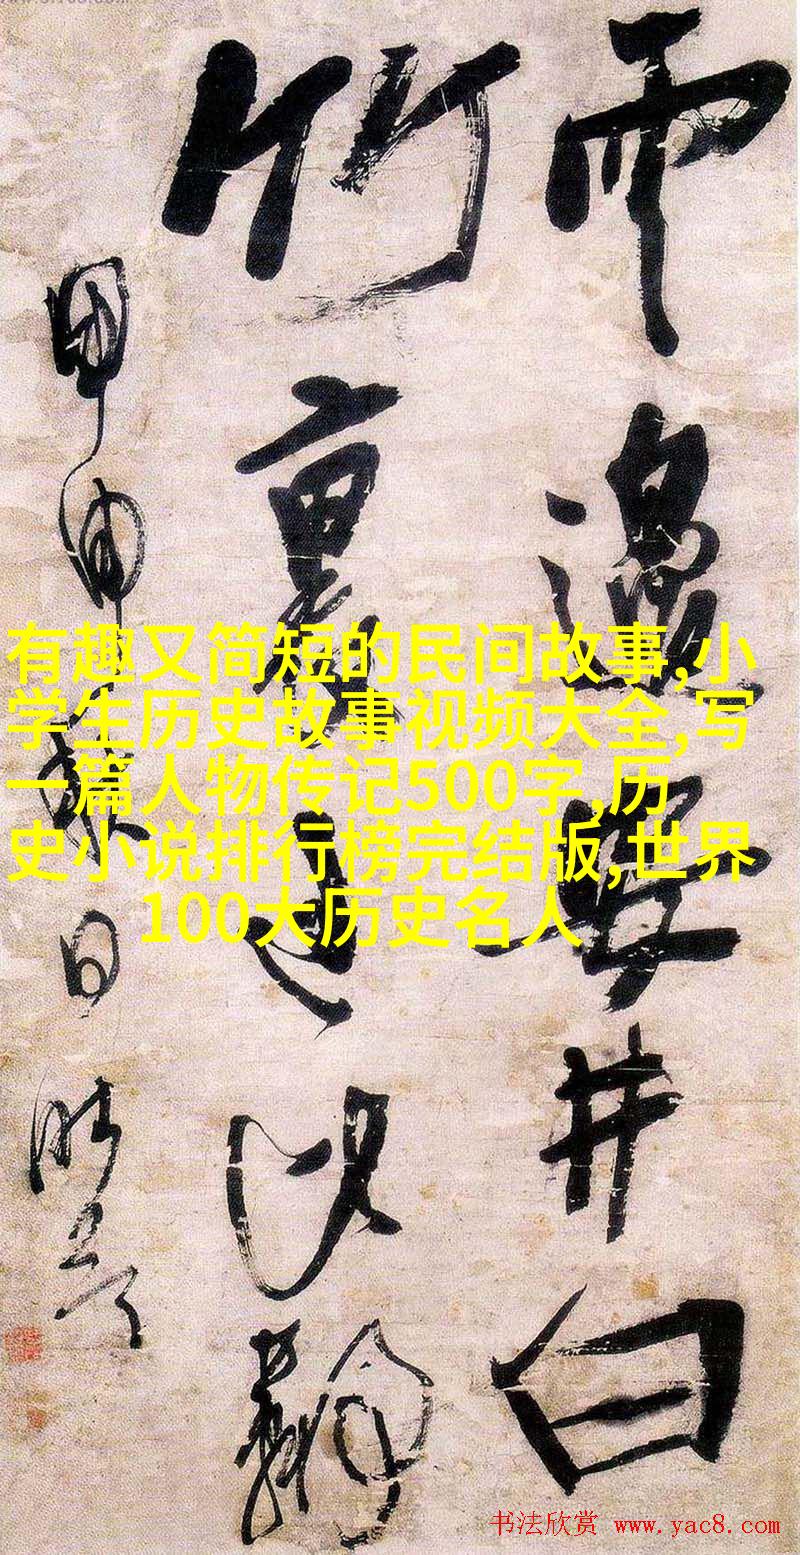 邊安井
竹裏
甲申秋日
有趣又简短的民间故事,小
学生历史故事视频大全,写
一篇人物传记500字,历
史小说排行榜完结版,世界
100大历史名人
书法欣赏 www.yac8.com